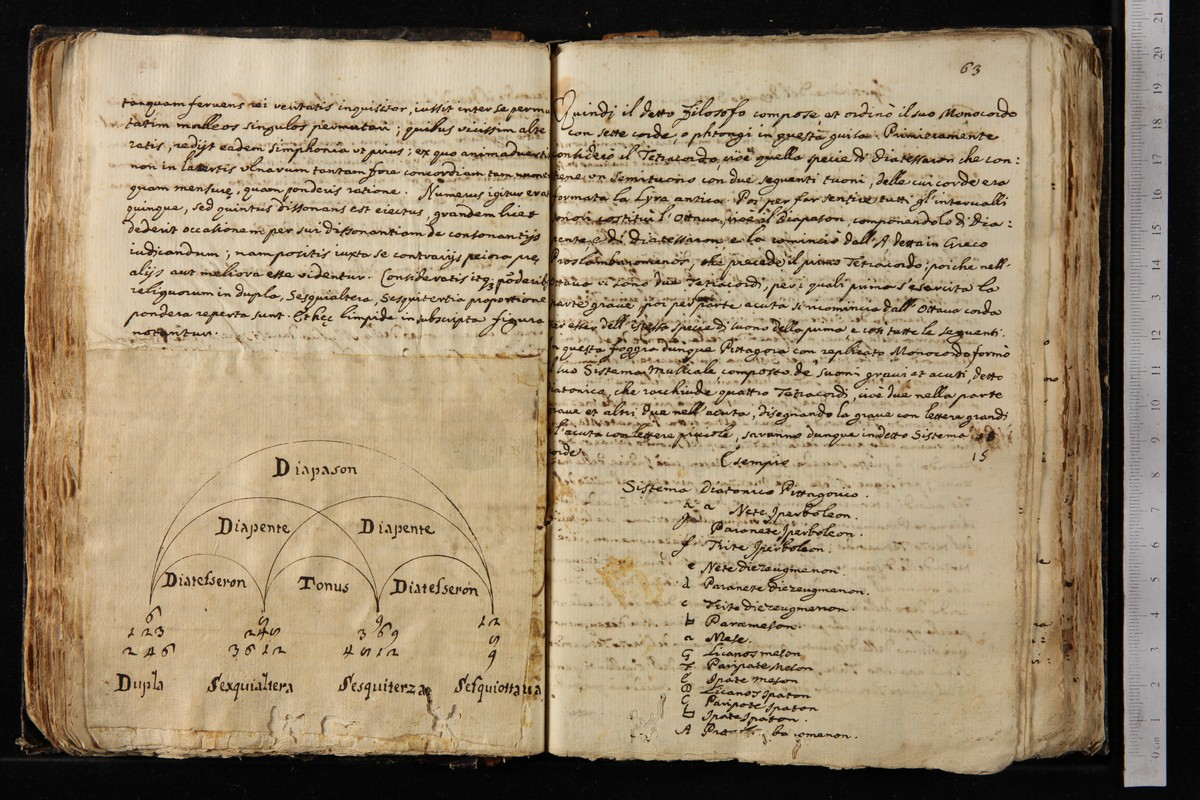 tanquam fervens rei veritatis inquisitor, iussit inter se permu
tatim malleos singulos permutari; quibus vicissim alte
ratis, redijt eadem simphonia ut prius; ex quo animadvertit
non in lacertis ulnarum tantam fore concordiam tam
quam mensurę, quam ponderis ratione. Numerus igitur erat
quinque, sed quintus dissonans est eiectus, quandem licet
dederit occationem per sui dissonantiam de consonantijs
iudicandum; nam positis iuxta se contrarijs peiora prę
alijs aut meliora esse videntur. Consideratis itq; põderib
reliquorum in dupla, Sesquialtera, Sesquitertia proportione
pondera reperta sunt. Et hęc limpide in subscripta figura
notantur.
Diapason
Diapente Diapente
Diatesseron Tonus Diatesseron
6 8 9 12
1 2 3 2 4 8 3 6 9 8
2 4 6 3 6 12 4 8 12 9
Dupla Sexquialtera Sesquiterza Sesquiottava
63
Quindi il detto Filosofo compose et ordinò il suo Monocordo
con sette corde, o phtongi in questa guisa. Primieramente
considerò il Tetracordo, cioè quella specie di Diatessaron che con:
tiene un Semituono con due seguenti tuoni, delle cui corde era
formata la Lyra antica. Poi per far sentire tutti gl'intervalli
costituì l'Ottava, cioè il Diapason, componendolo di Dia:
pente e di Diatessaron, e la cominciò dall'A detta in Greco
Proslambanomenos, che precede il primo Tetracordo; poiche nell'
ottava vi sono due Tetracordi, per i quali prima s'esercita la
parte grave, poi per parte acuta si ricomincia dall'Ottava corda
per esser dell'istessa specie di suono della prima, e così tutte le seguenti.
questa foggia dunque Pittagora con replicato Monocordo formò
suo Sistema Musicale, composto de suoni gravi et acuti, detto
Diatonico, che racchiude quattro Tetracordi, cioè due nella parte
grave et altri due nell'acuta, disegnando la grave con lettere grandi
l'acuta con lettere piccole, saranno dunque in detto Sistema
corde 15
Esempio
Sistema Diatonico Pittagorico.
a Nete Iperboleon.
g Paranete Iperboleon.
f Trite Iperboleon.
e Nete diezeugmenon
d Paranete diezeugmenon.
c Trite diezeugmenon.
b Parameson.
a Mese.
G Licanos meson
F Paripate Meson
E Ipate meson
D Licanos Ipaton
C Paripate Ipaton
b Ipate Ipaton.
A